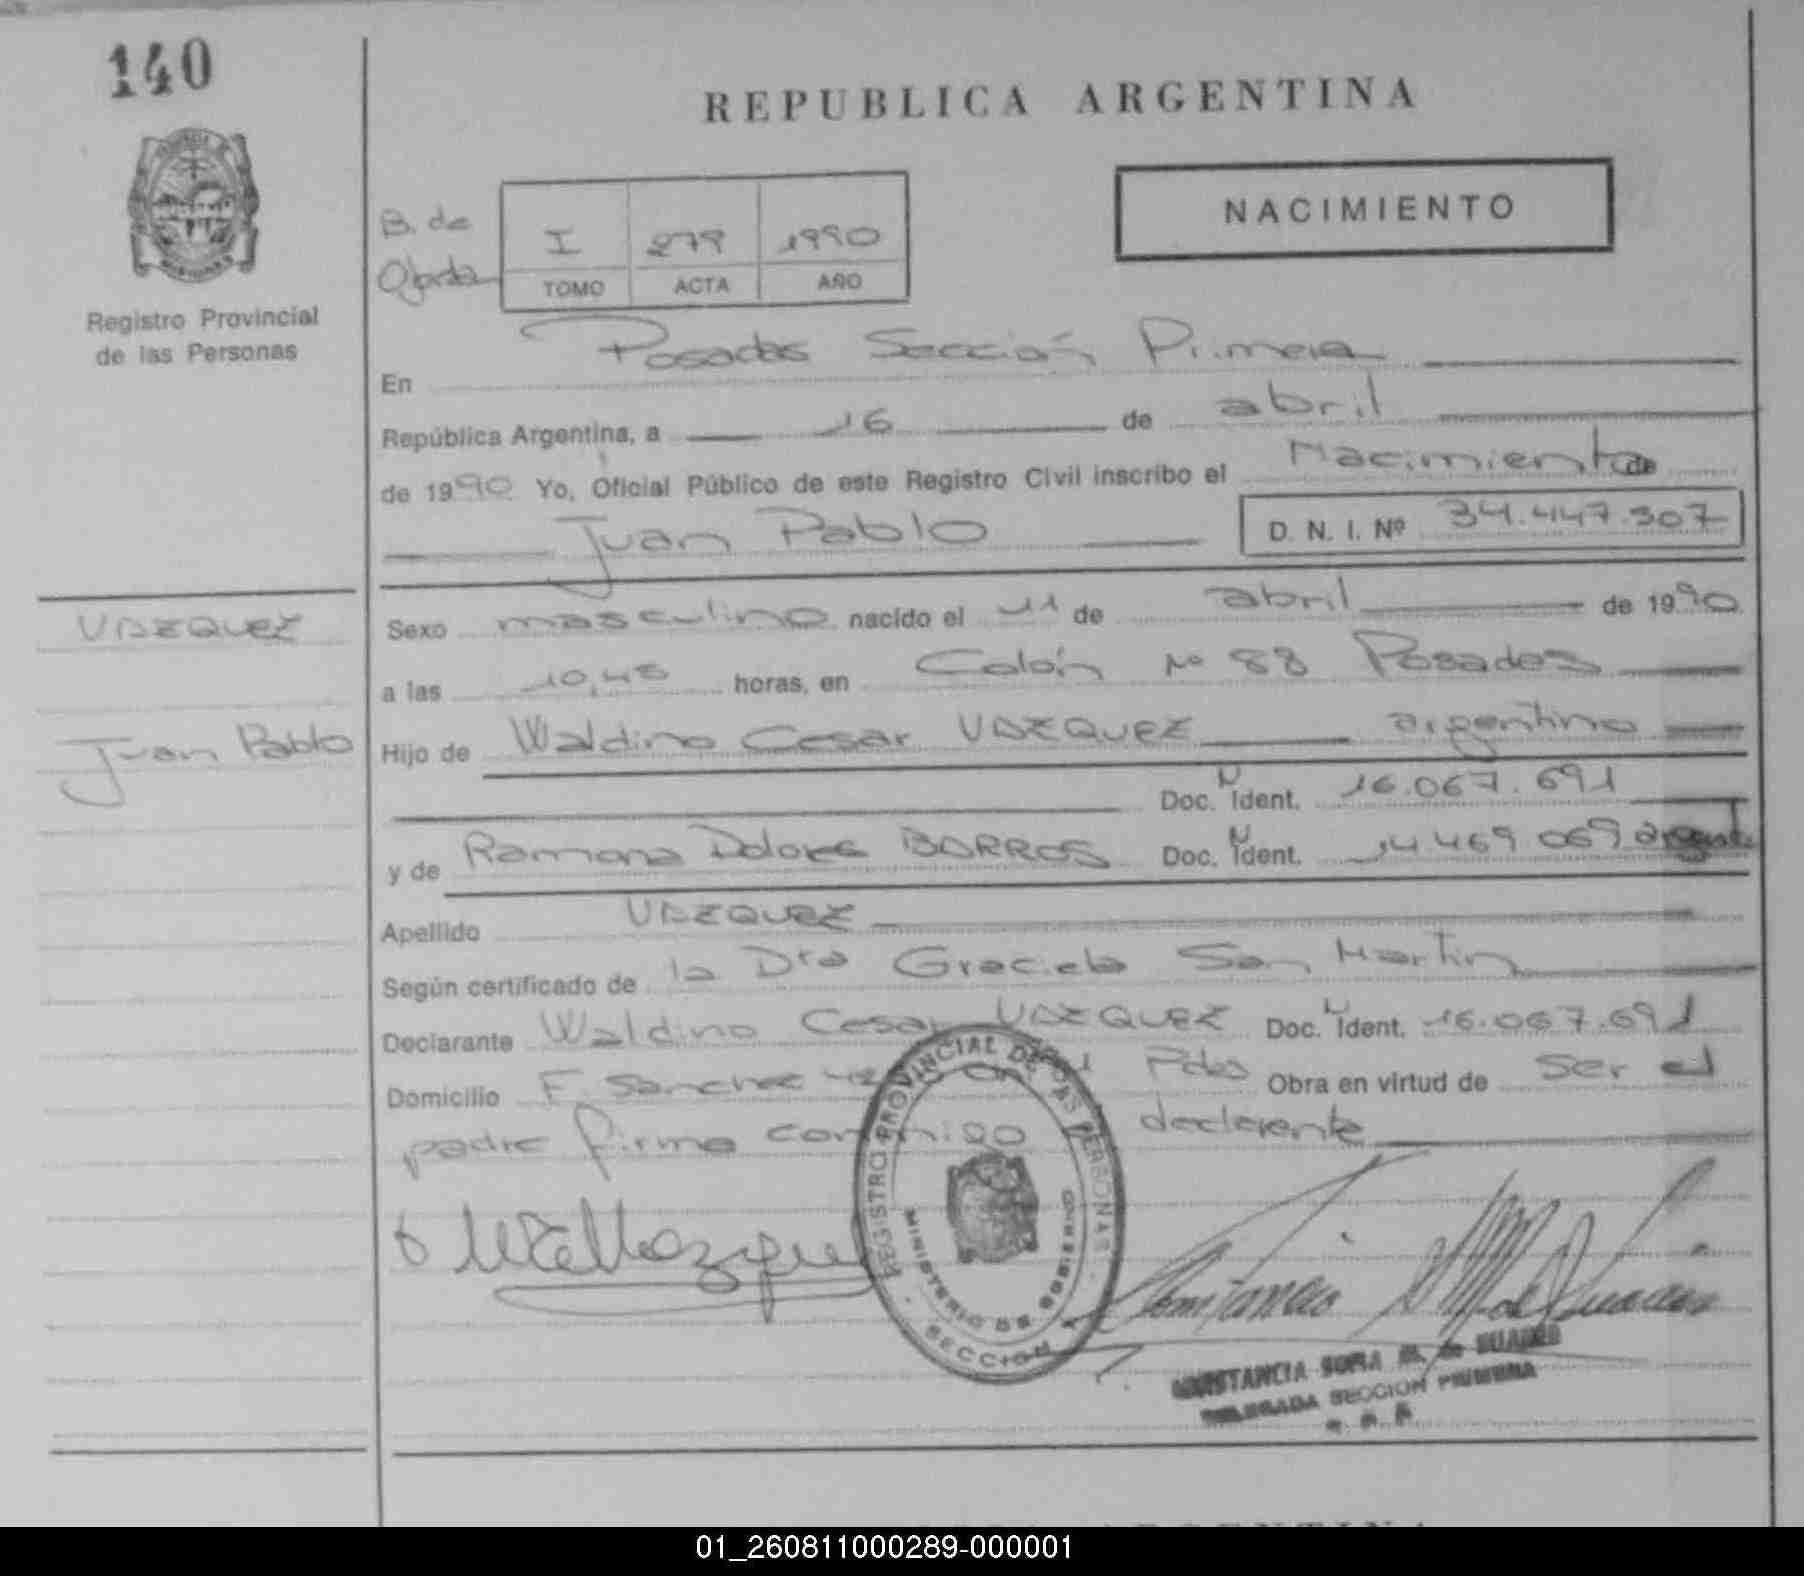 140
REPUBLICA ARGENTINA
NACIMIENTO
B. de
I 279 1990
TOMO ACTA AÑO
Registro Provincial
de las Personas
En Posadas Sección Primera
República Argentina, a 16 de abril
de 1990 Yo, Oficial Público de este Registro Civil inscribo el Nacimiento de
Juan Pablo D. N. I. Nº 34.447.307
VAZQUEZ
Juan Pablo
Sexo masculino nacido el 11 de abril de 1990
a las 10,45 horas, en Colón Nº 88 Posadas
Hijo de Waldino Cesar VAZQUEZ argentino
Doc. N Ident. 16.067.691
y de Ramona Dolores BARROS Doc. N Ident. 14 469 069
Apellido VAZQUEZ
Según certificado de la Dra Graciela San Martin
Declarante Waldino Cesar VAZQUEZ Doc. N Ident. 16.067.691
Domicilio F. Sanchez Pdas Obra en virtud de ser el
padre firma conmigo declarante
REGISTRO PROVINCIAL DE LAS PERSONAS
MINISTERIO DE GOBIERNO
SECCION
CONSTANCIA SOFIA M. de SUAREZ
DELEGADA SECCION PRIMERA
01_260811000289-000001